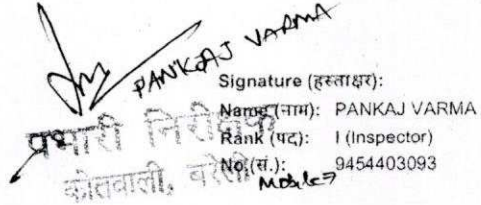 PANKAJ VARMA
Signature (हस्ताक्षर):
Name (नाम): PANKAJ VARMA
Rank (पद): I (Inspector)
No.(सं.): 9454403093
Mobile
प्रभारी निरीक्षक
कोतवाली, बरेली